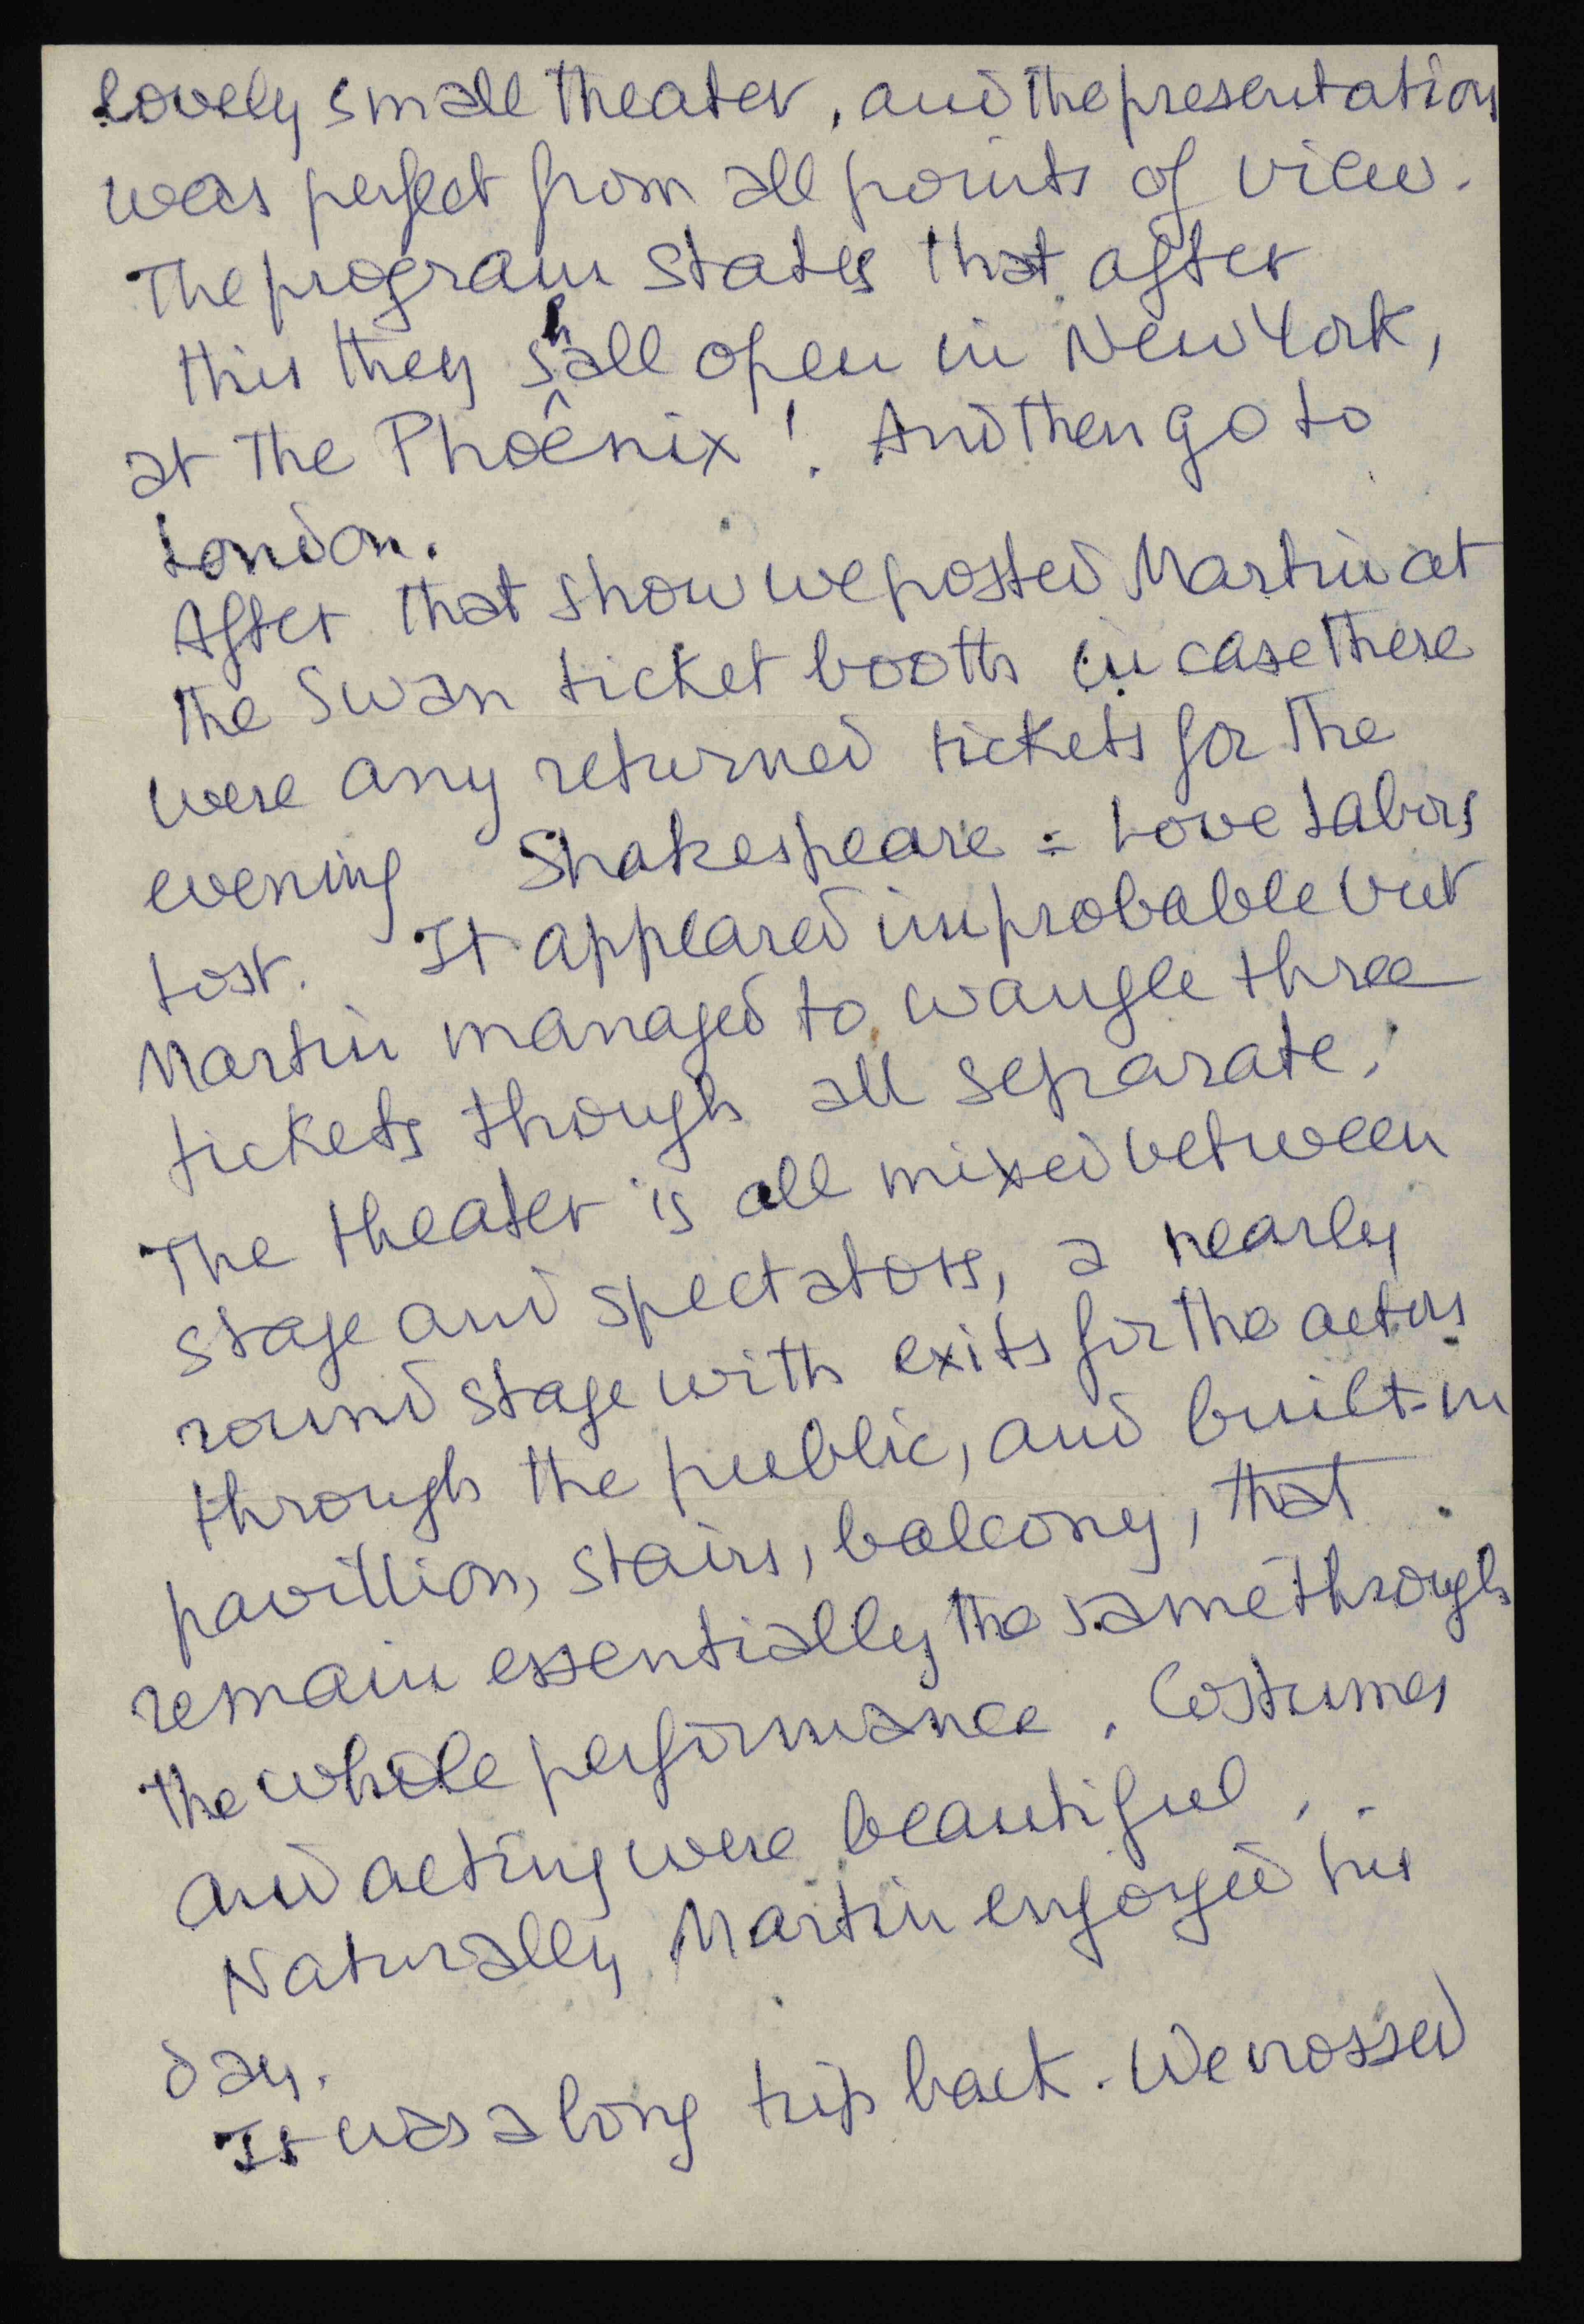 lovely small theater, and the presentation
was perfect from all points of view.
The program states that after
this they shall open in New York,
at the Phoênix! And then go to
London.
After that show we posted Martin at
the Swan ticket booth in case there
were any returned tickets for the
evening Shakespeare = Love Labors
Lost. It appeared improbable but
Martin managed to wangle three
tickets though all separate.
The theater is all mixed between
stage and spectators, a nearly
round stage with exits for the actors
through the public, and built-in
pavillion, stairs, balcony, that
remain essentially the same through
the whole performance. Costumes
and acting were beautiful.
Naturally Martin enjoyed his
day.
It was a long trip back. We crossed